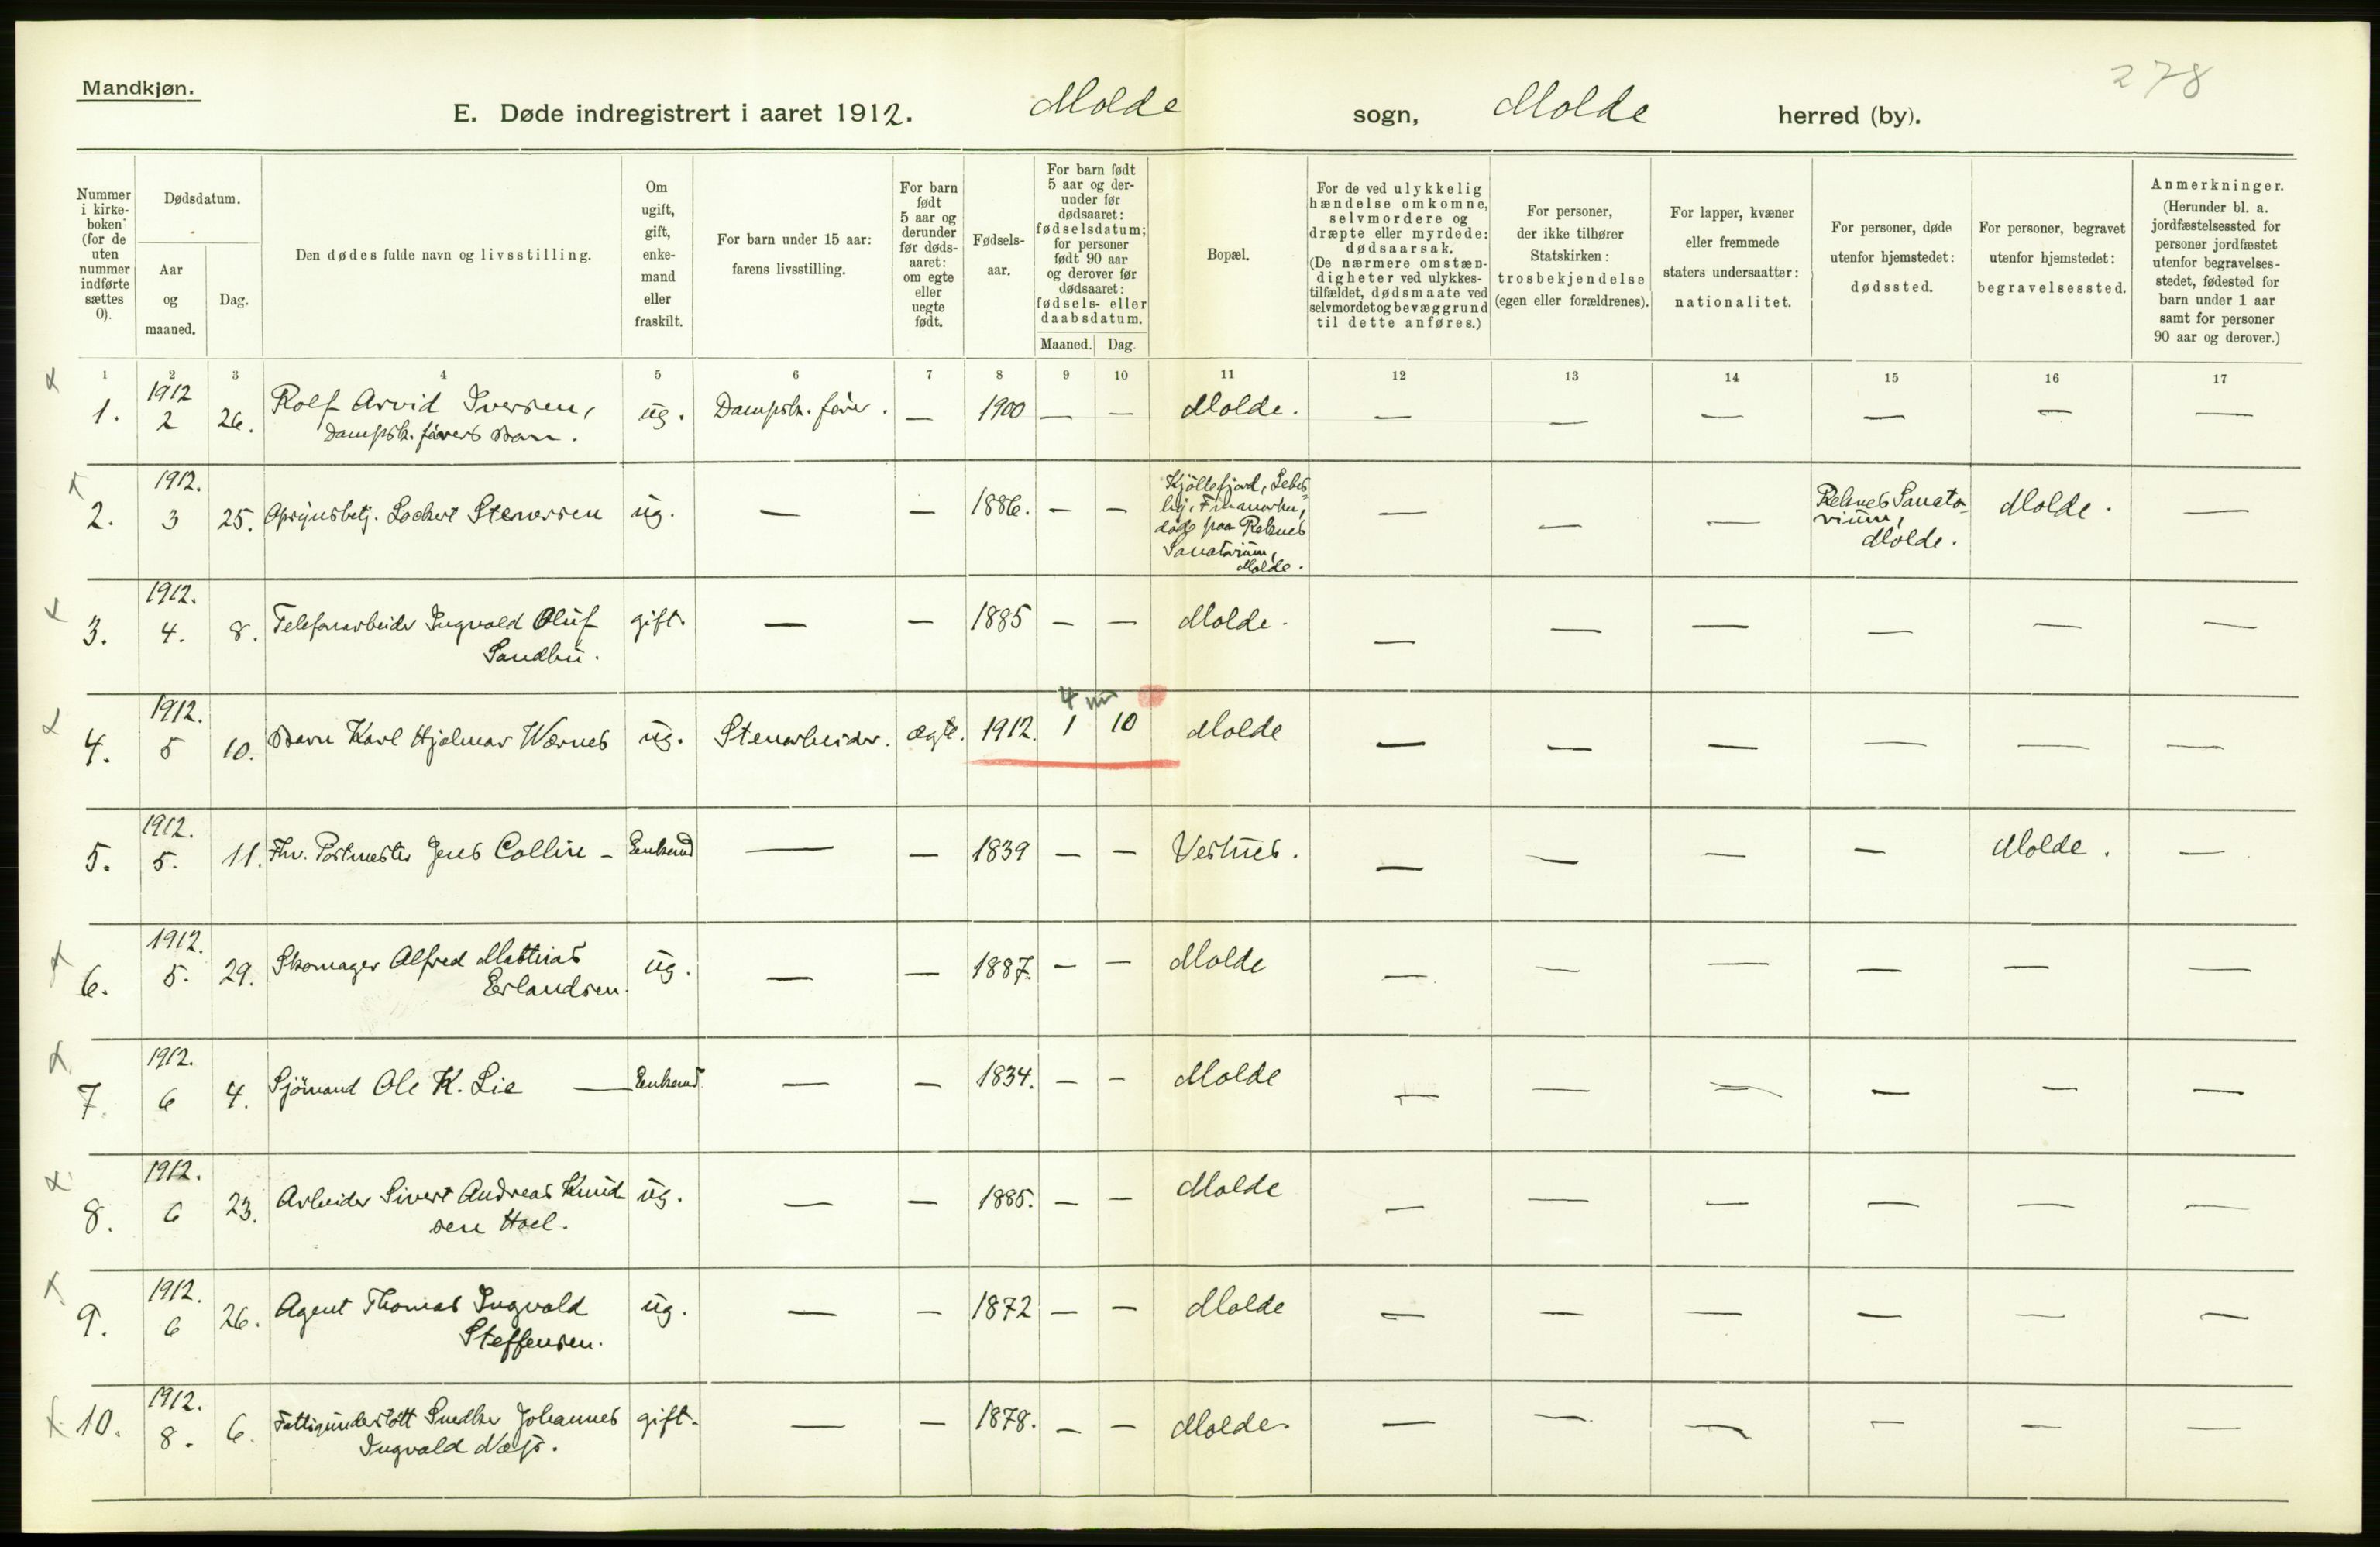 278
Mandkjøn.
E. Døde indregistrert i aaret 1912. Molde sogn, Molde herred (by).
Nummer i kirke-boken (for de uten nummer indførte sættes 0).
Dødsdatum.
Aar og maaned.
Dag.
Den dødes fulde navn og livsstilling.
Om ugift, gift, enke-mand eller fraskilt.
For barn under 15 aar: farens livsstilling.
For barn født 5 aar og derunder før døds-aaret: om egte eller uegte født.
Fødsels-aar.
For barn født 5 aar og der-under før dødsaaret: fødselsdatum; for personer født 90 aar og derover før dødsaaret: fødsels- eller daabsdatum.
Maaned. Dag.
Bopæl.
For de ved ulykkelig hændelse omkomne, selvmordere og dræpte eller myrdede: dødsaarsak. (De nærmere omstæn-digheter ved ulykkes-tilfældet, dødsmaate ved selvmordet og bevæggrund til dette anføres.)
For personer, der ikke tilhører Statskirken: trosbekjendelse (egen eller forældrenes).
For lapper, kvæner eller fremmede staters undersaatter: nationalitet.
For personer, døde utenfor hjemstedet: dødssted.
For personer, begravet utenfor hjemstedet: begravelsessted.
Anmerkninger. (Herunder bl. a. jordfæstelsessted for personer jordfæstet utenfor begravelses-stedet, fødested for barn under 1 aar samt for personer 90 aar og derover.)
1 2 3 4 5 6 7 8 9 10 11 12 13 14 15 16 17
1. 1912 2 26. Rolf Arvid Iversen, ug. Dampsk. fører. — 1900 — — Molde. — — — — — —
Dampsk. førers Barn.
2. 1912. 3 25. Opsynsbetj. Lockert Stenersen ug. — — 1886. — — Kjöllefjord, Lebes-
by, Finmarken,
døde paa Reknes
Sanatorium,
Molde. — — — Reknes Sanato-
rium,
Molde. Molde. —
3. 1912. 4. 8. Telefonarbeider Ingvald Oluf gift. — — 1885 — — Molde. — — — — — —
Sandbu.
4 m
4. 1912. 5 10. Barn Karl Hjalmar Wærnes ug. Stenarbeider. ægte. 1912. 1 10 Molde — — — — — —
5. 1912. 5. 11. Fhv. Postmester Jens Collin – Enkemd — — 1839 — — Vestnes. — — — — Molde. —
6. 1912. 5. 29. Skomager Alfred Mathias ug. — — 1887. — — Molde — — — — — —
Erlandsen.
7. 1912. 6 4. Sjömand Ole K. Lie — Enkemd — — 1834. — — Molde — — — — — —
8. 1912. 6 23. Arbeider Sivert Andreas Knud ug. — — 1885. — — Molde — — — — — —
sen Hoel.
9. 1912. 6 26. Agent Thomas Ingvald ug. — — 1872 — — Molde — — — — — —
Steffensen.
10. 1912. 8. 6. Fattigunderstött Snedker Johannes gift. — — 1878. — — Molde. — — — — — —
Ingvald